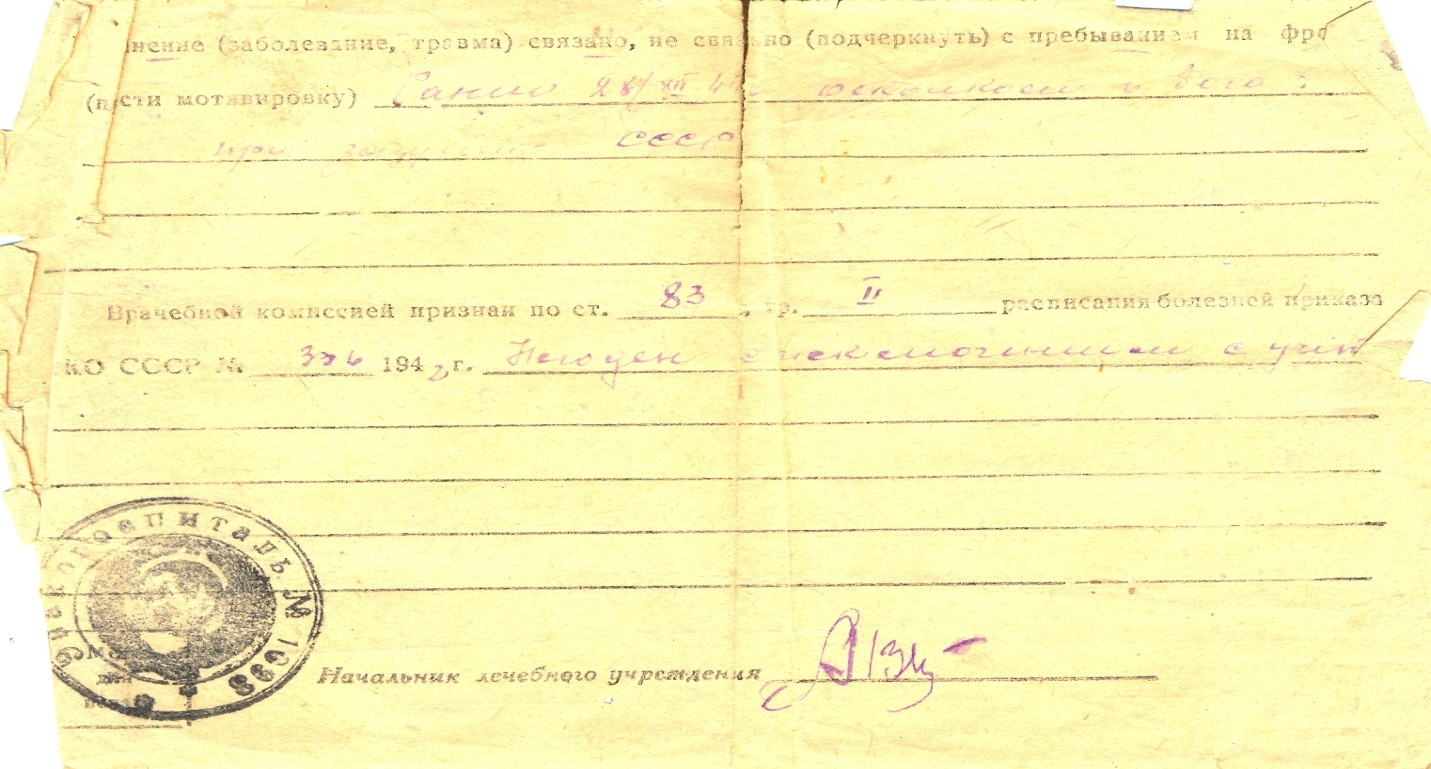 нение (заболевание, травма) связано, не связано (подчеркнуть) с пребыванием на фро
(п сти мотивировку) Ранен 28/XII 4 осколком в
при защите СССР
Врачебной комиссией признан по ст. 83, гр. II расписания болезней приказа
КО СССР № 336 1942 г. Негоден с исключением с учёта
Эвакогоспиталь № 1698
М.
для
печати
Начальник лечебного учреждения